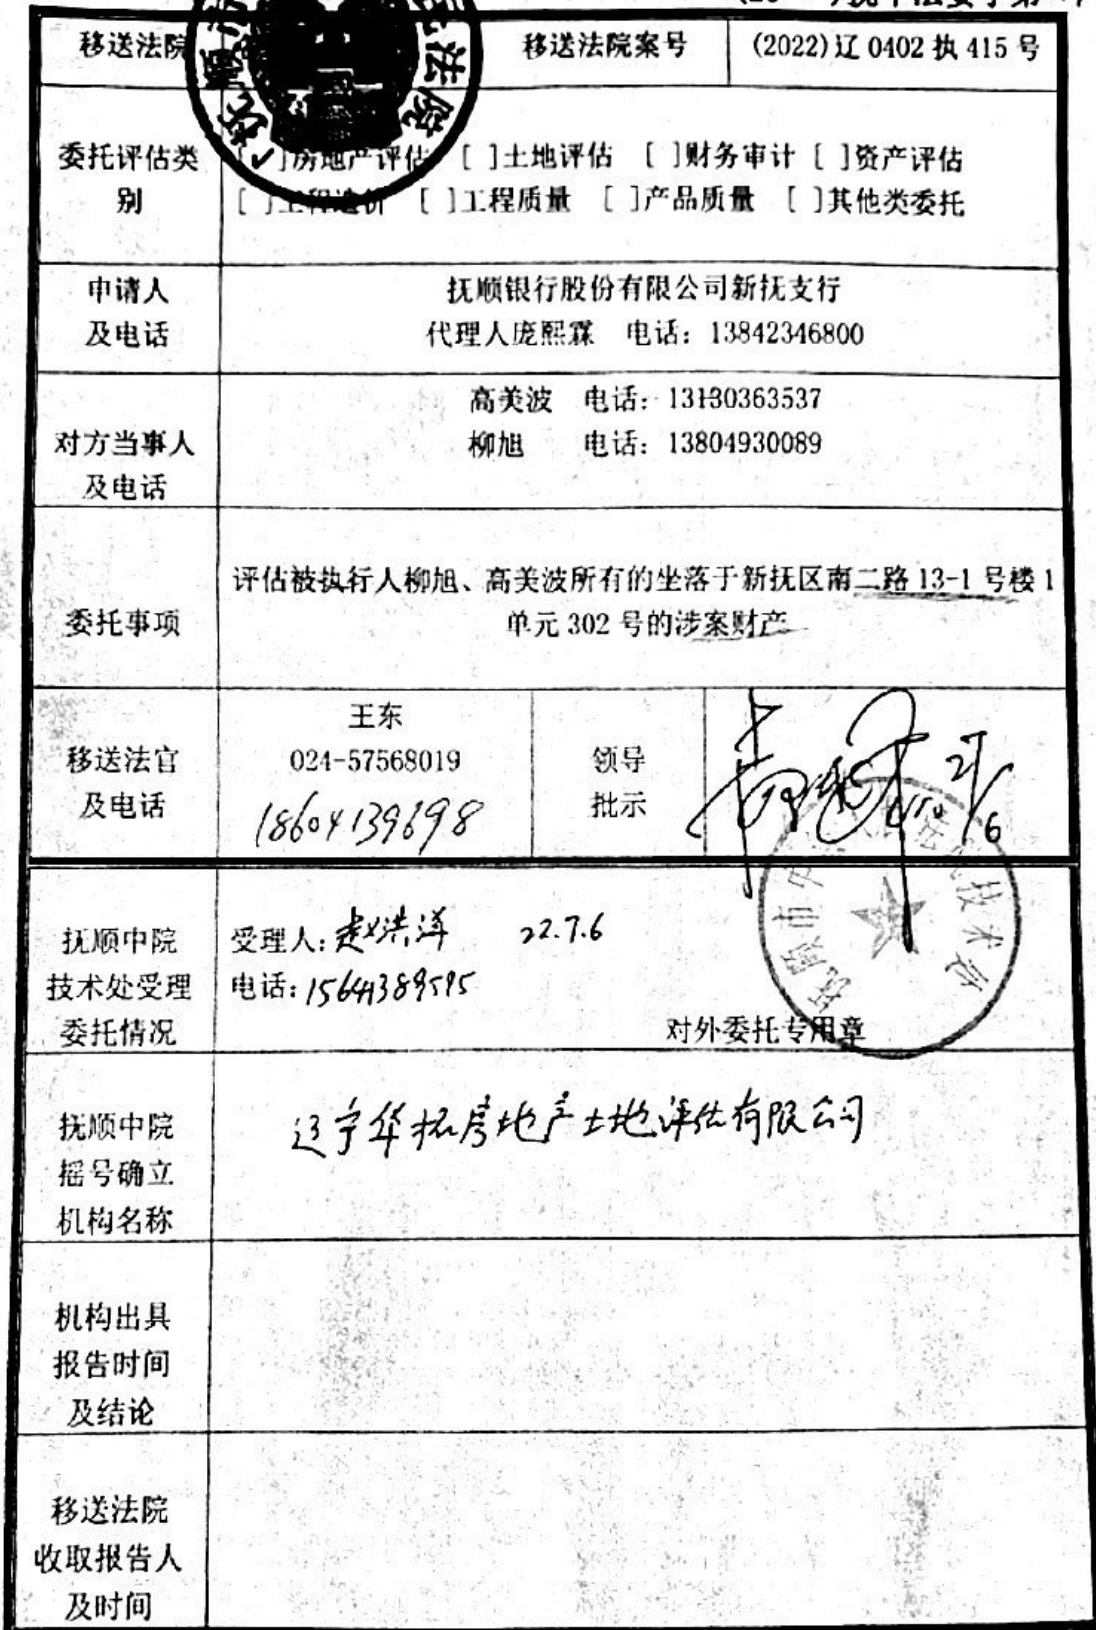 移送法院
移送法院案号
(2022)辽 0402 执 415 号
委托评估类
别
[ ]房地产评估 [ ]土地评估 [ ]财务审计 [ ]资产评估
[ ]工程造价 [ ]工程质量 [ ]产品质量 [ ]其他类委托
申请人
及电话
抚顺银行股份有限公司新抚支行
代理人庞熙霖 电话：13842346800
对方当事人
及电话
高美波 电话：13130363537
柳旭 电话：13804930089
委托事项
评估被执行人柳旭、高美波所有的坐落于新抚区南二路 13-1 号楼 1
单元 302 号的涉案财产
移送法官
及电话
王东
024-57568019
18604139698
领导
批示
抚顺中院
技术处受理
委托情况
受理人：赵洪洋 22.7.6
电话：15641389595
对外委托专用章
抚顺中院
摇号确立
机构名称
辽宁华拓房地产土地评估有限公司
机构出具
报告时间
及结论
移送法院
收取报告人
及时间